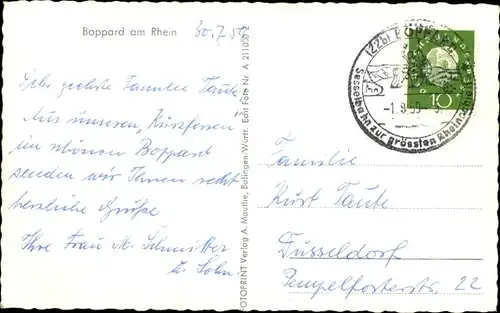 Boppard am Rhein
30.7.59
Sehr geehrte Familie Taute
Aus unseren "Kurzferien"
im schönen Boppard
senden wir Ihnen recht
herzliche Grüße
Ihre Frau M. Schmitter
u. Sohn
FOTOPRINT Verlag A. Mauthe, Balingen-Württ. Echt Foto Nr. A 211020
(22b) BOPPARD
-1.8.59
Sesselbahn zur grössten Rheinschleife
10
Familie
Kurt Taute
Düsseldorf
Tempelforterstr. 22